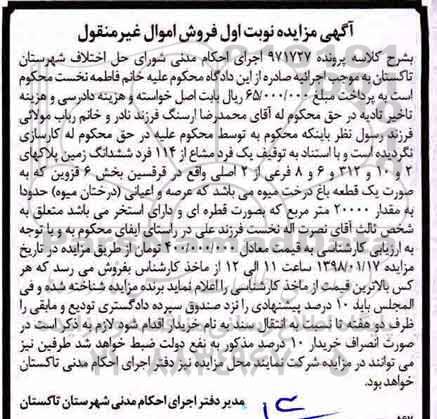 آگهی مزایده نوبت اول فروش اموال غیرمنقول
بشرح کلاسه پرونده ۹۷۱۷۲۷ اجرای احکام مدنی شورای حل اختلاف شهرستان
تاکستان به موجب اجرائیه صادره از این دادگاه محکوم علیه خانم فاطمه نخست محکوم
است به پرداخت مبلغ ۶۵/۰۰۰/۰۰۰ ریال بابت اصل خواسته و هزینه دادرسی و هزینه
تاخیر تادیه در حق محکوم له آقای محمدرضا ارسنگ فرزند نادر و خانم رباب مولائی
فرزند رسول نظر باینکه محکوم به توسط محکوم علیه در حق محکوم له کارسازی
نگردیده است و با استناد به توقیف یک فرد مشاع از ۱۱۴ فرد ششدانگ زمین پلاکهای
۲ و ۱۰ و ۳۱۲ و ۶ و ۸ فرعی از ۲ اصلی واقع در قرقسین بخش ۶ قزوین که به
صورت یک قطعه باغ درخت میوه می باشد که عرصه و اعیانی (درختان میوه) حدودا
به مقدار ۲۰۰۰۰ متر مربع که بصورت قطره ای و دارای استخر می باشد متعلق به
شخص ثالث آقای نصرت اله نخست فرزند علی در راستای ایفای محکوم به و با توجه
به ارزیابی کارشناسی به قیمت معادل ۴۰۰/۰۰۰/۰۰۰ تومان از طریق مزایده در تاریخ
مزایده ۱۳۹۸/۰۱/۱۷ ساعت ۱۱ الی ۱۲ از ماخذ کارشناس بفروش می رسد که هر
کس بالاترین قیمت از ماخذ کارشناسی را اعلام نماید برنده مزایده شناخته شده و فی
المجلس باید ۱۰ درصد پیشنهادی را نزد صندوق سپرده دادگستری تودیع و مابقی را
ظرف دو هفته تا نسبت به انتقال سند به نام خریدار اقدام شود لازم به ذکر است در
صورت انصراف خریدار ۱۰ درصد مذکور به نفع دولت ضبط خواهد شد طرفین نیز
می توانند در مزایده شرکت نمایند محل مزایده نیز دفتر اجرای احکام مدنی تاکستان
خواهد بود.
مدیر دفتر اجرای احکام مدنی شهرستان تاکستان